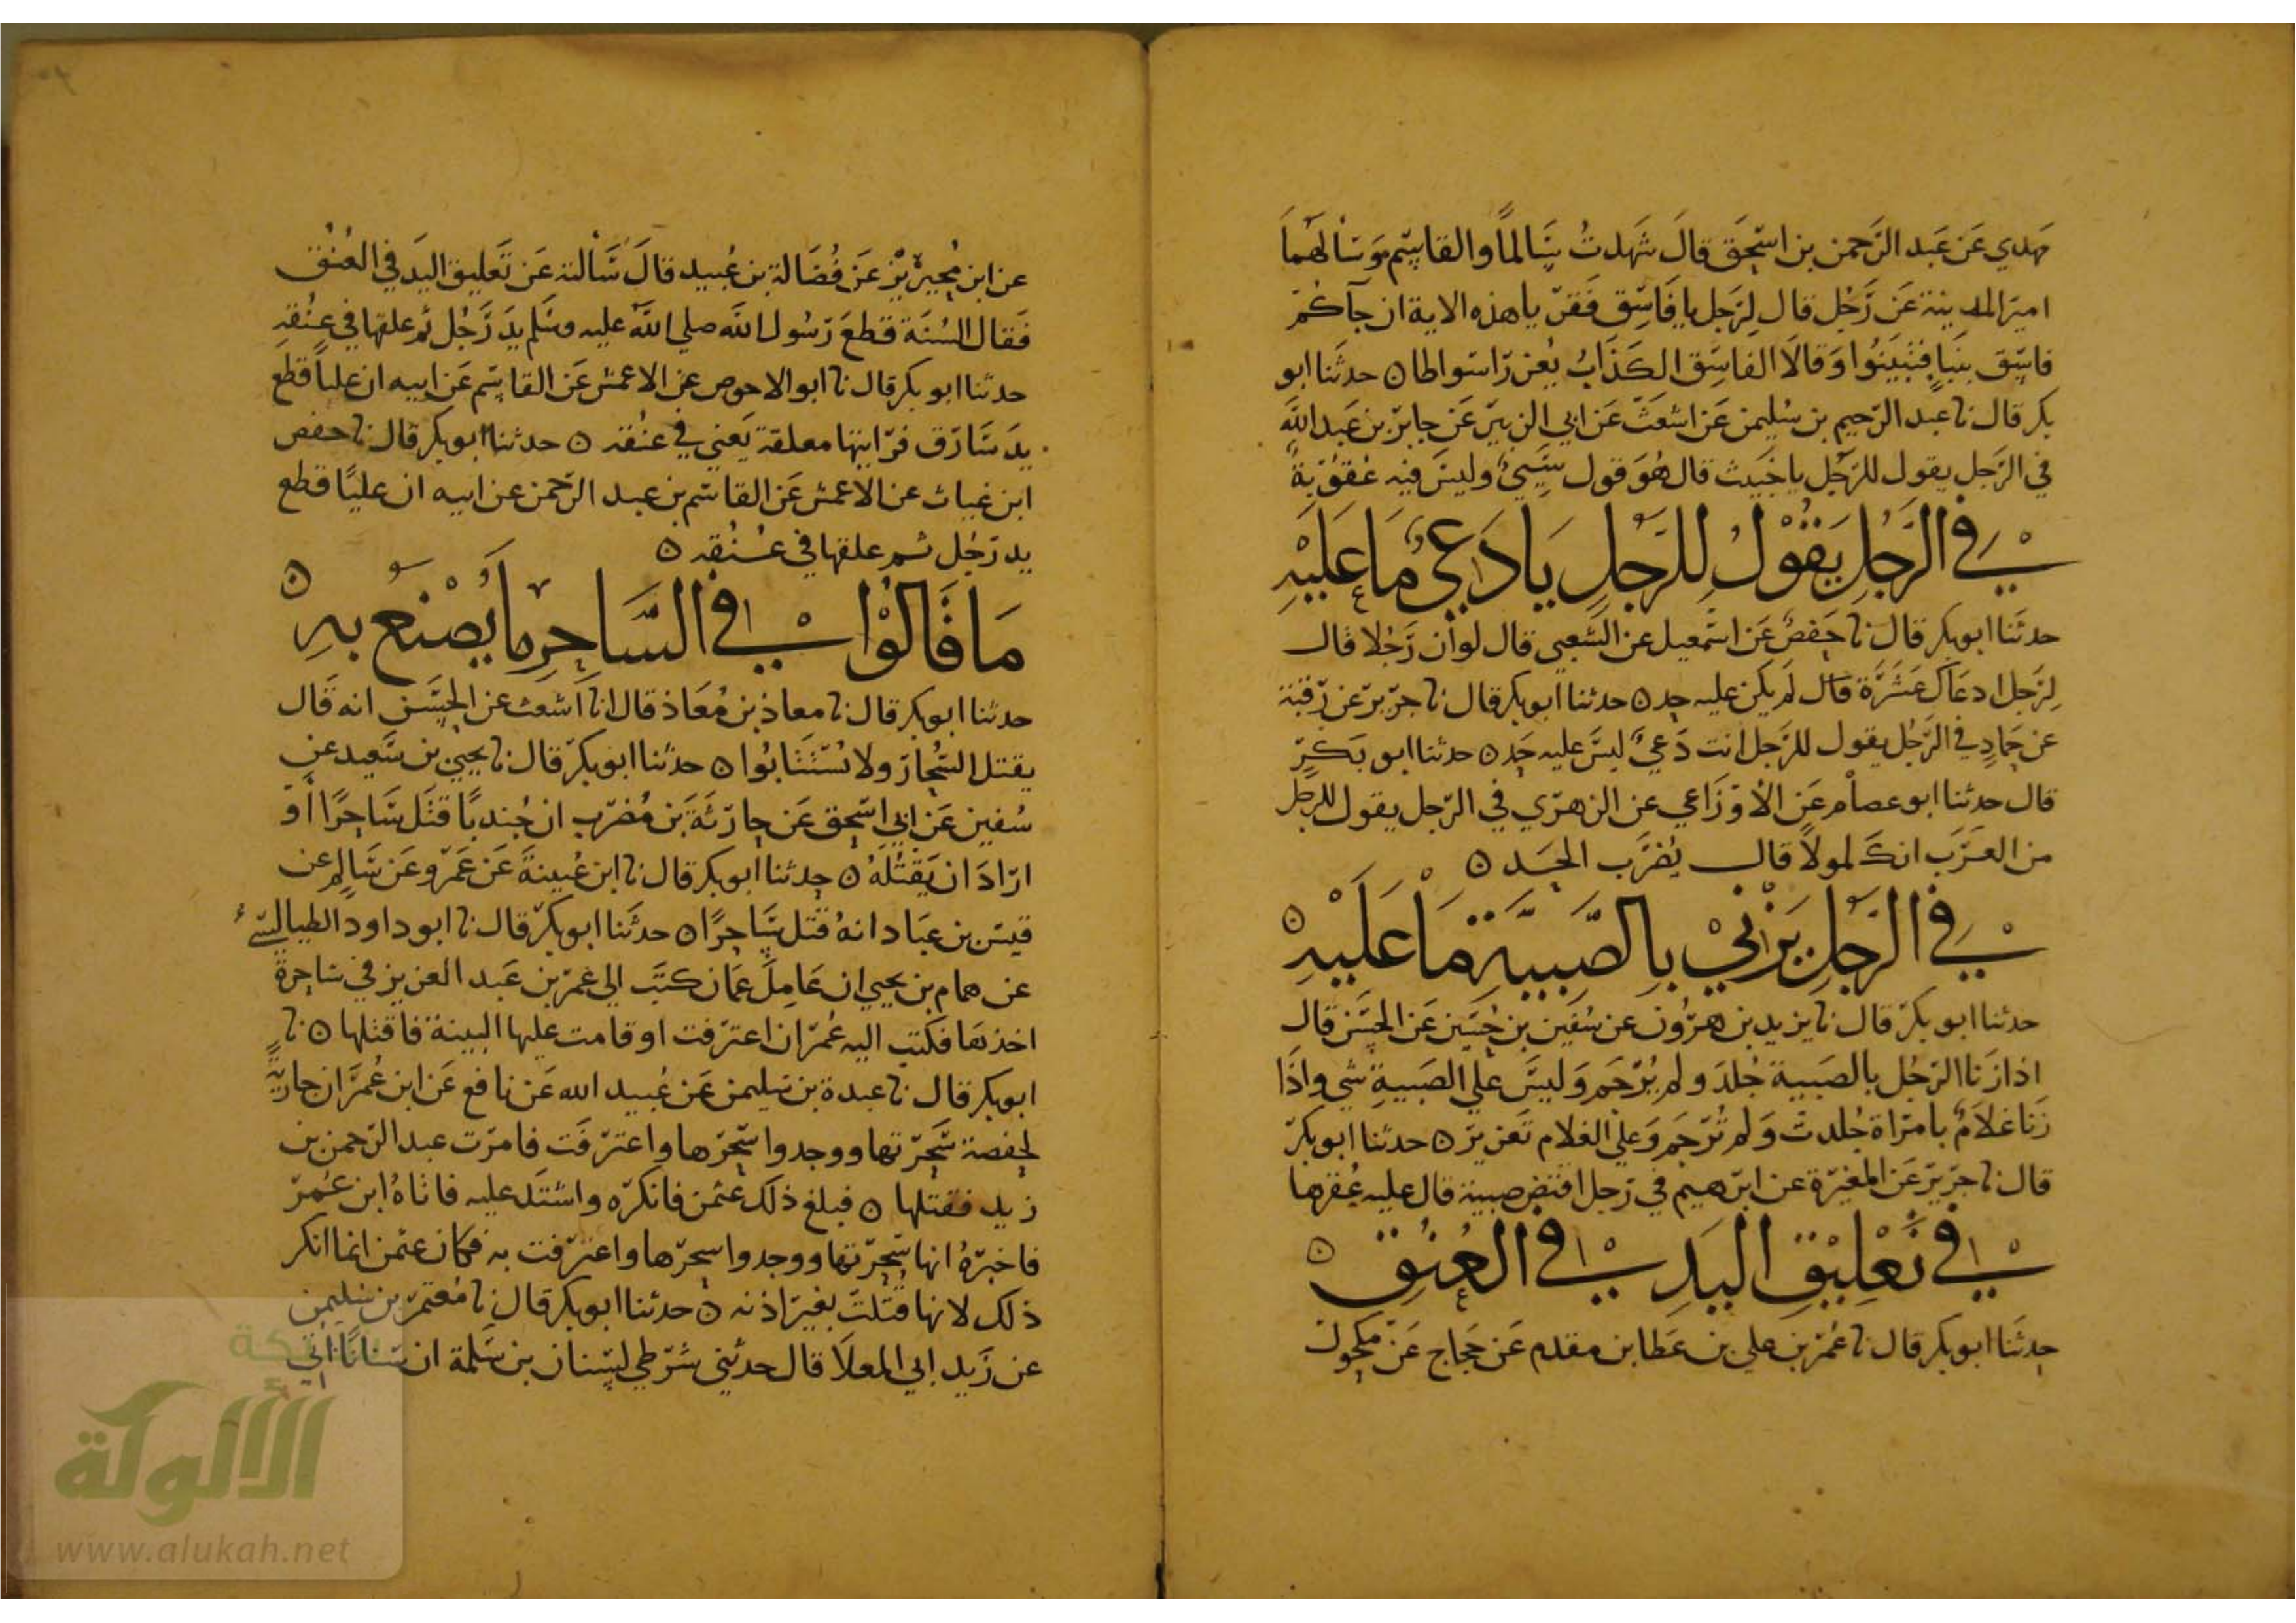 مهدي عَن عَبد الرَّحمن بن اسحَق قالَ شَهَدتُ سَالماً والقاسِم وَسَالهُما
اميرَ المدينة عَن رَجُل قال لِرَجل يا فَاسِق فَقرَ يا هذه الاية ان جآكُم
فاسِق بِنَبَإٍ فتَبَيَنُوا وَقالَا الفاسِق الكَذابُ يُعزر اسواطا ۞ حدثَنا ابو
بكر قال نا عبد الرَحيم بن سُليمن عَن اشعَث عَن ابي الزبير عَن جابر بن عَبد اللهِ
في الرَجل يقول للرَجل يا خَبيث قال هُوَ قول سَيِّئ وليسَ فيه عُقُوبَةٌ
في الرَّجُلِ يَقُوْلُ لِلرَّجلِ يَا دَعِيُّ مَا عَلَيْهِ
حدثَنا ابو بكر قال نا حَفصٌ عَن اسمَعيل عَن الشَعبي قال لو اَن رَجُلا قال
لِرَجل ادعَاكَ عَشَرَة قال لَم يَكن عليه حد ۞ حدثنا ابو بكر قال نا جرير عَن رَقبَة
عن حَمادٍ في الرَجُل يقول للرَجل انت دَعيٌّ ليسَ عليه حَد ۞ حدثنا ابو بَكرٍ
قال حدثنا ابو عصام عَن الاَوزَاعي عن الزهري في الرَجل يقول للرجل
من العَرَب انكَ لمولاً قال يُضرَب الحَد ۞
في الرَّجلِ يَزْنِيْ بِالصَّبِيَّةِ مَا عَلَيْهِ ۞
حدثنا ابو بكر قال نا يزيد بن هرُون عن سُفين بن حُسَين عَن الحسَن قال
اذا زَنا الرَجُل بالصَبية جُلدَ ولم يُرجَم وَليسَ علي الصَبيةِ شي واِذَا
زَنا غلاَمٌ بامرَاة جُلدت وَلم تُرجَم وَعلي الغلام تَعزير ۞ حدثنا ابو بكر
قال نا جَرير عَن المغيرَة عن ابرَهيم في رَجل افتَض صبية قال عليه عُقرها
في تَعْلِيْقِ اليَدِ في العُنِقِ ۞
حدثَنا ابو بكر قال نا عُمَر بن علي بن عَطا بن مقدم عَن حَجاج عَن مكحول
عن ابن مُحيريْز عَن فُضَالة بن عُبيد قالَ سَاَلته عَن تَعليق اليَد في العُنُق
فَقال السُنَة قطعَ رَسُول الله صلي اللهُ عليه وسَلم يدَ رَجُل ثم علقها في عنُقه
حدثنا ابو بكر قال نا ابو الاحوص عن الاعمش عَن القاسِم عَن ابيه ان علياً قطع
يدَ سَارق فرَايتها معلقة يَعني في عنُقه ۞ حدثنا ابو بكر قال نا حفص
ابن غياث عن الاعمش عَن القاسم بن عبد الرَحمن عن ابيه ان عليًا قطع
يد رَجُل ثم علقها في عُنُقه ۞
مَا قَالُوْا في السَّاحِرِ مَا يُصْنَعُ بهِ ۞
حدثنا ابو بكر قال نا معاذ بن مُعَاذ قال انا اشعث عن الحسَن انه قَال
يقتل السُحار ولا يُستَتَابُوا ۞ حدثنا ابو بكر قال نا يحيي بن سَعيد عن
سُفين عَن ابي اسحق عَن حارثَةَ بَن مُضَرب ان جُندبًا قتَل سَاحِرًا اَو
ارَادَ ان يَقتُلهُ ۞ حدثنا ابو بكر قال نا ابن عُيينةَ عَن عَمرو عَن سَالم عن
قيس بن عبَاد انهُ قتل سَاحرًا ۞ حدثَنا ابو بكر قال نا ابو داود الطيالسي
عن همام بن يحيي ان عَامِلَ عمَان كتبَ الي عُمر بن عَبد العزيز في ساحِرة
اخذها فكتب اليه عُمر ان اعترفت او قامت عليها البينة فاقتلها ۞ نا
ابو بكر قال نا عبدة بن سليمن عَن عُبيد الله عَن نافع عَن ابن عُمَر ان جاريةً
لحفصة سَحَرتها ووجدوا سِحرها واعترَفَت فامرت عبد الرَحمن بن
زيد فقتلها ۞ فبلغ ذلك عثمن فانكره واشتَد عليه فاتاهُ ابن عُمر
فاخبرهُ انها سَحرتها ووجدوا سِحرها واعترفت به فكان عثمن انما انكر
ذلك لانها قُتلت بغير اذنه ۞ حدثنا ابو بكر قال نا مُعتمر بن سُليمن
عن زَيد ابي المعلَا قال حدثني شرَطي لسِنان بن سَلمة ان سنانًا اتي
الألوكة
www.alukah.net